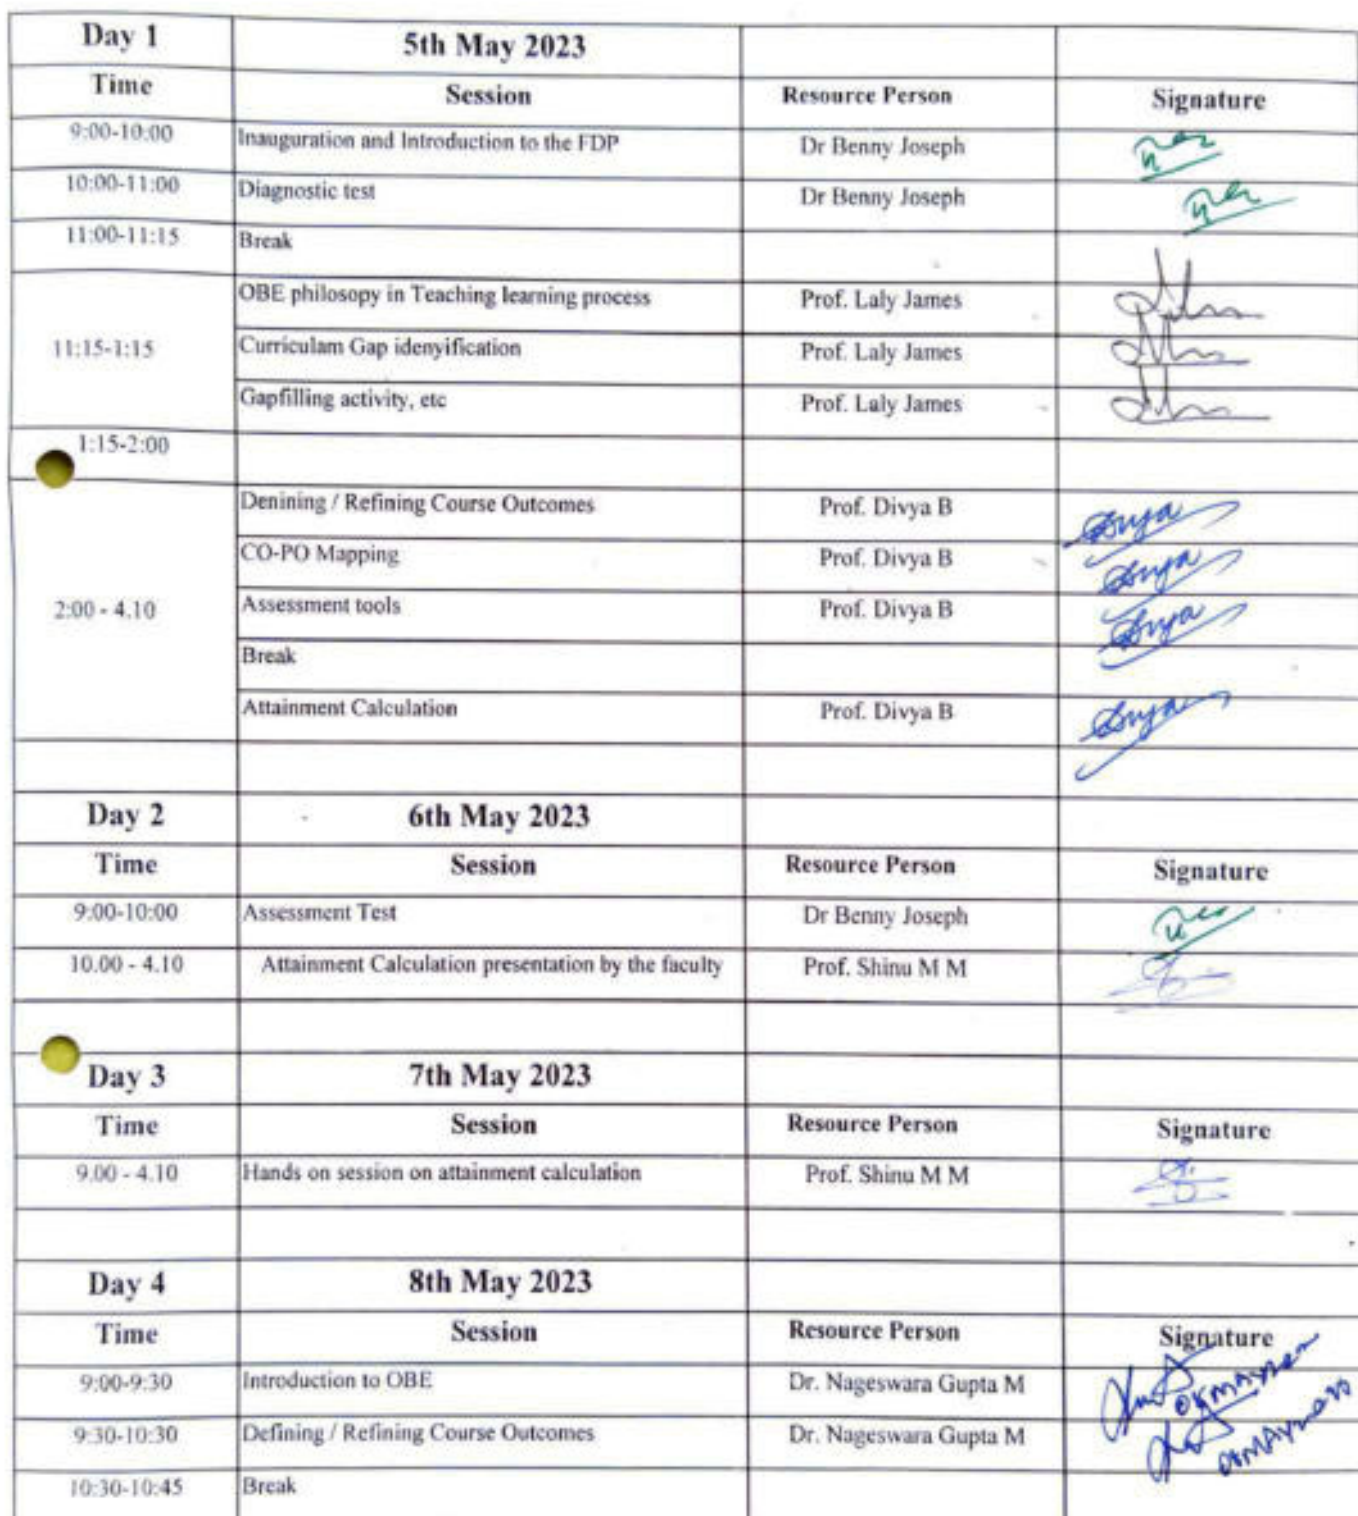 Day 1 5th May 2023
Time Session Resource Person Signature
9:00-10:00 Inauguration and Introduction to the FDP Dr Benny Joseph
10:00-11:00 Diagnostic test Dr Benny Joseph
11:00-11:15 Break
OBE philosopy in Teaching learning process Prof. Laly James
11:15-1:15 Curriculam Gap idenyification Prof. Laly James
Gapfilling activity, etc Prof. Laly James
1:15-2:00
Denining / Refining Course Outcomes Prof. Divya B
CO-PO Mapping Prof. Divya B
2:00 - 4.10 Assessment tools Prof. Divya B
Break
Attainment Calculation Prof. Divya B
Day 2 6th May 2023
Time Session Resource Person Signature
9:00-10:00 Assessment Test Dr Benny Joseph
10.00 - 4.10 Attainment Calculation presentation by the faculty Prof. Shinu M M
Day 3 7th May 2023
Time Session Resource Person Signature
9.00 - 4.10 Hands on session on attainment calculation Prof. Shinu M M
Day 4 8th May 2023
Time Session Resource Person Signature
9:00-9:30 Introduction to OBE Dr. Nageswara Gupta M
9:30-10:30 Defining / Refining Course Outcomes Dr. Nageswara Gupta M
10:30-10:45 Break